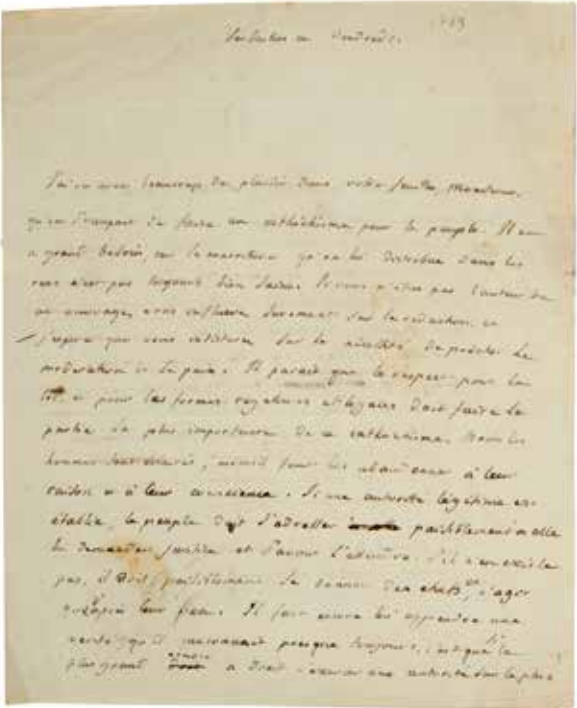 1789
vendredi.
J'ai vu avec beaucoup de plaisir dans votre feuille, Monsieur,
qu'on de faire un cathéchisme pour le peuple. Il en
a grand besoin, car la nourriture qu'on lui distribue dans les
rues n'est pas toujours bien saine. Si vous n'êtes pas l'auteur de
cet ouvrage, vous influerez surement sur la rédaction, et
j'espère que vous insisterez sur la nécessité de prêcher la
modération et la paix. Il parait que le respect pour la
loi et pour les formes et légales doit faire la
partie la plus importante de ce cathéchisme.
hommes sont égarés, il faut les à leur
raison et à leur conscience. Si une autorité légitime est
établie, le peuple doit s'adresser paisiblement à elle
lui demander justice et savoir l'attendre. S'il n'en existe
pas, il doit paisiblement se donner des chefs, et agir
leur . Il faut encore lui apprendre une
vérité qu'il presque toujours, c'est que le
plus grand a droit une autorité sur le plus